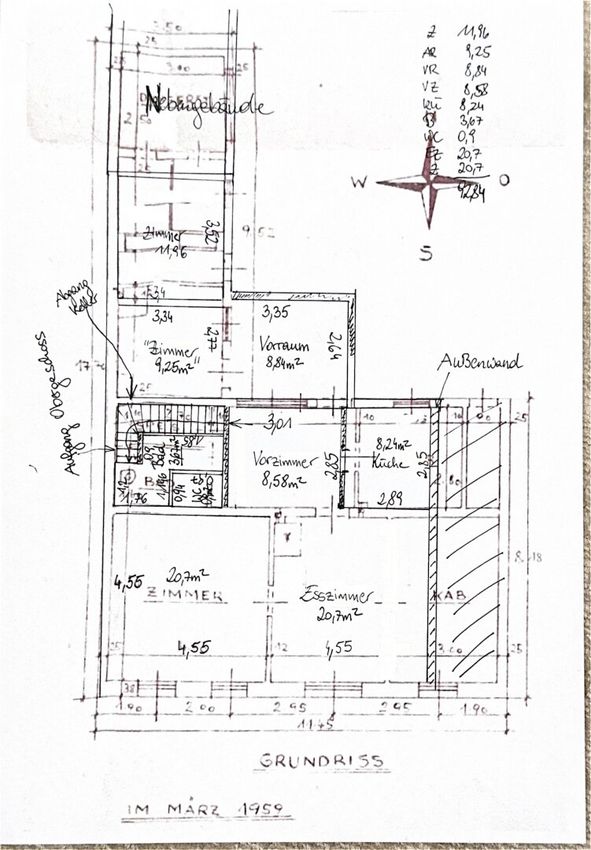 3.50
25
25 3.00 25
Nebengebäude
2
50
25
Zimmer
11,96
3,52
9.52
3,34
3,34
"Zimmer"
9,25m²
2,77
25
3,35
Vorraum
8,84m²
2,64
Abgang
Keller
Aufgang Obergeschoss
Außenwand
Z 11,96
AR 9,25
VR 8,84
VZ 8,58
Kü 8,24
B 3,67
WC 0,9
EZ 20,7
Z 20,7
92,84
W O
S
3,01
10
25
Vorzimmer
8,58m²
2,85
8,24m²
Küche
2,85
2,89
Bad
3,67m²
1,76
0,94
WC
B
20,7m²
ZIMMER
4,55
4,55
Esszimmer
20,7m²
4,55
KAB
8.18
25 12 3.00 25
38
1.90 2.00 2.95 2.95 1.90
11.45
GRUNDRISS
IM MÄRZ 1959